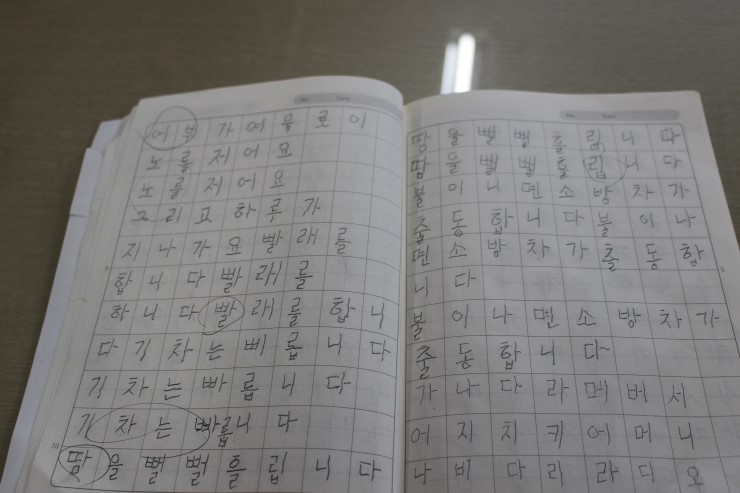 No.    Date
어부가여유로이
노를저어요
노을저어요
그리고하루가
지나가요빨래를
합니다빨래를
하니다빨래를합니
다기차는삐릅니다
기차는빠릅니다
기차는빠릅니다
10
땀을뻘뻘흘립니다
No.    Date
땀을뻘뻘흘림니다
땀을뻘뻘흘립니다
불이니면소방차가
출동합니다불이나
면소방차가출동합
니다
불이나면소방차가
출동합니다
가나다라머버서
어지치키어머니
나비다리라디오